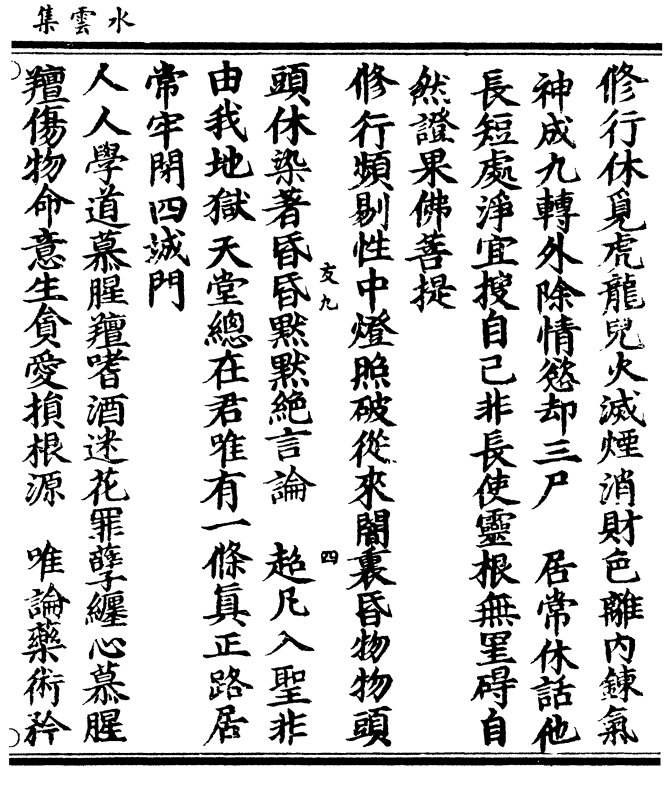 水雲集
修行休覓虎龍兒火滅煙消財色離内鍊氣
神成九轉外除情慾却三尸　居常休話他
長短處淨宜搜自己非長使靈根無罣碍自
然證果佛菩提
修行頻剔性中燈照破從來闇裏昏物物頭
友九　四
頭休染著昏昏默默絶言論　超凡入聖非
由我地獄天堂總在君唯有一條眞正路居
常牢閉四誠門
人人學道慕腥羶嗜酒迷花罪孽纏心慕腥
羶傷物命意生貪愛損根源　唯論藥術矜